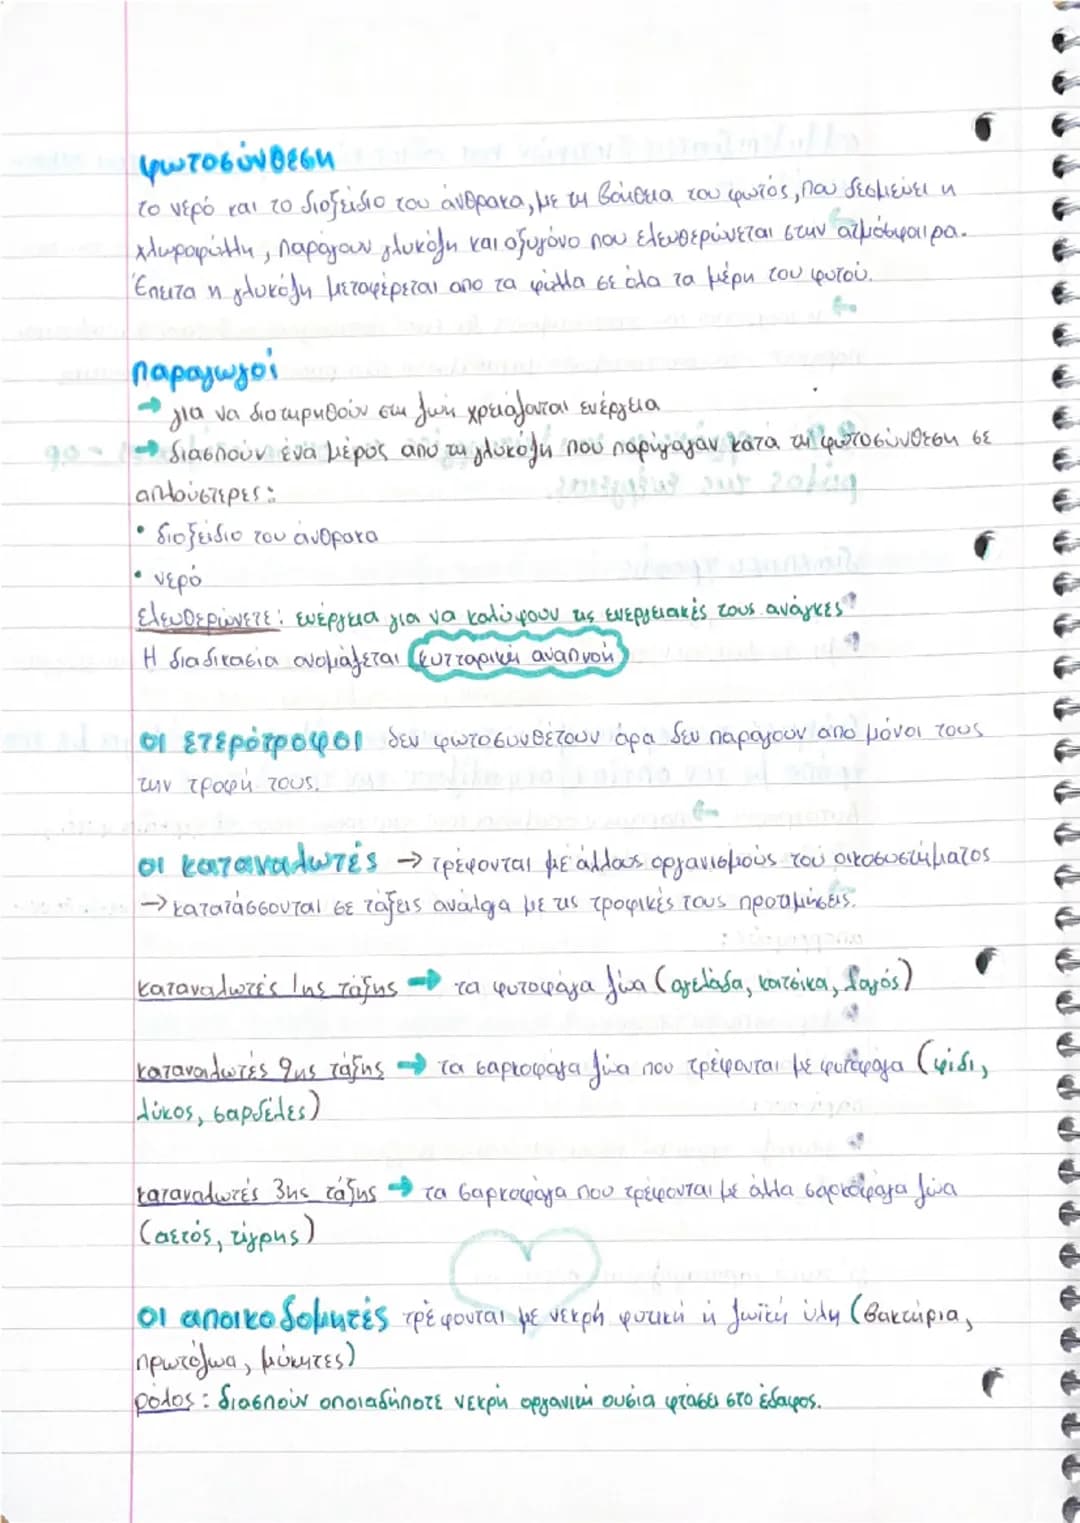 φωτοσύνθεση
το νερό και το διοξείδιο του άνθρακα, με τη βοήθεια του φωτός, που δεσμεύει η
χλωροφύλλη, παράγουν γλυκόζη και οξυγόνο που ελευθερώνεται στην ατμόσφαιρα.
Έπειτα η γλυκόζη μεταφέρεται από τα φύλλα σε όλα τα μέρη του φυτού.
παραγωγοί
→ για να διατηρηθούν στη ζωή χρειάζονται ενέργεια
→ διασπούν ένα μέρος από τη γλυκόζη που παρήγαγαν κατά τη φωτοσύνθεση σε
απλούστερες:
• διοξείδιο του άνθρακα
• νερό
Ελευθερώνετε: ενέργεια για να καλύψουν τις ενεργειακές τους ανάγκες
Η διαδικασία ονομάζεται κυτταρική αναπνοή
οι ετερότροφοι δεν φωτοσυνθέτουν άρα δεν παράγουν από μόνοι τους
την τροφή τους.
οι καταναλωτές → τρέφονται με άλλους οργανισμούς του οικοσυστήματος
→ κατατάσσονται σε τάξεις ανάλογα με τις τροφικές τους προτιμήσεις.
καταναλωτές 1ης τάξης → τα φυτοφάγα ζώα (αγελάδα, κατσίκα, λαγός)
καταναλωτές 2ης τάξης → τα σαρκοφάγα ζώα που τρέφονται με φυτοφάγα (φίδι,
λύκος, σαρδέλες)
καταναλωτές 3ης τάξης → τα σαρκοφάγα που τρέφονται με άλλα σαρκοφάγα ζώα
(αετός, τίγρης)
οι αποικοδομητές τρέφονται με νεκρή φυτική ή ζωϊκή ύλη (βακτήρια,
πρωτόζωα, μύκητες)
ρόλος: διασπούν οποιαδήποτε νεκρή οργανική ουσία φτάσει στο έδαφος.